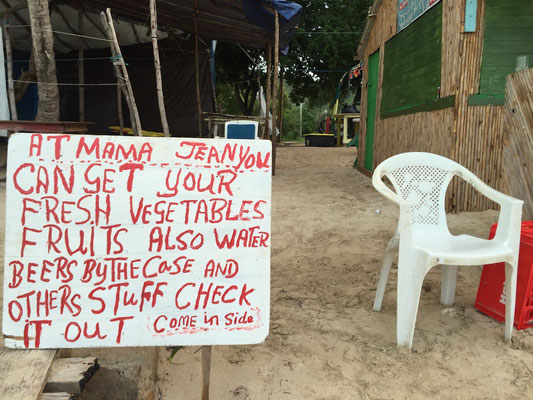 AT MAMA JEAN YOU
CAN GET YOUR
FRESH VEGETABLES
FRUITS ALSO WATER
BEERS BY THE CASE AND
OTHERS STUFF CHECK
IT OUT COME in Side